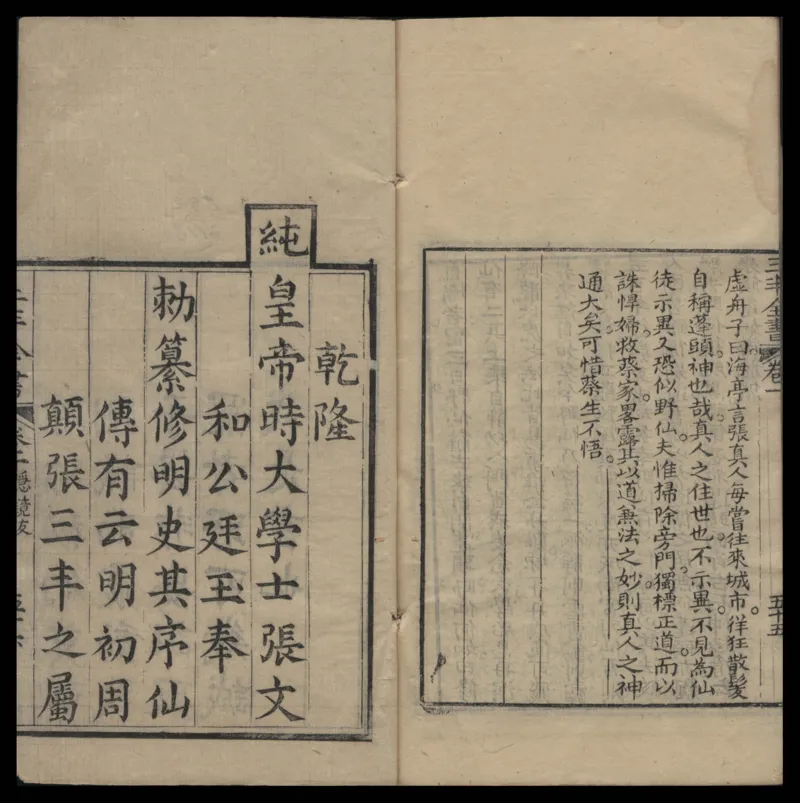 三丰全書 卷一 五十五
虛舟子曰海亭言張真人每嘗往來城市佯狂散髮
自稱蓬頭神也哉真人之住世也不示異不見為仙
徒示異又恐似野仙夫惟掃除旁門獨標正道而以
誅悍婦救蔡家畧露其以道無法之妙則真人之神
通大矣可惜蔡生不悟
乾隆
純皇帝時大學士張文
和公廷玉奉
勅纂修明史其序仙
傳有云明初周
顛張三丰之屬
三丰全書 卷二 隱鏡跋